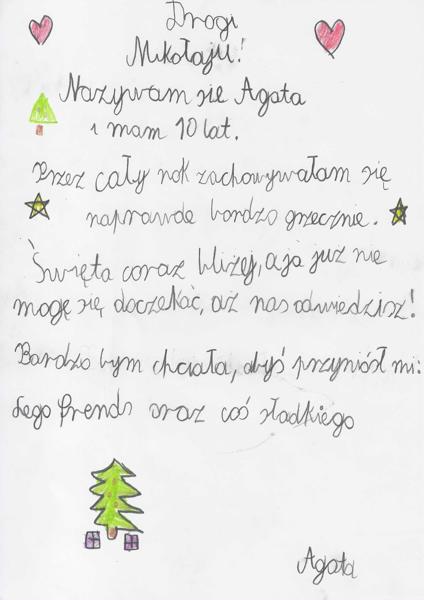 Drogi
Mikołaju!
Nazywam sie Agata
i mam 10 lat.
Przez cały rok zachowywałam się
naprawde bardzo grzecznie.
Święta coraz bliżej, a ja już nie
mogę się doczekać, aż nas odwiedzisz!
Bardzo bym chciała, abyś przyniósł mi:
Lego frends oraz coś słodkiego
Agata